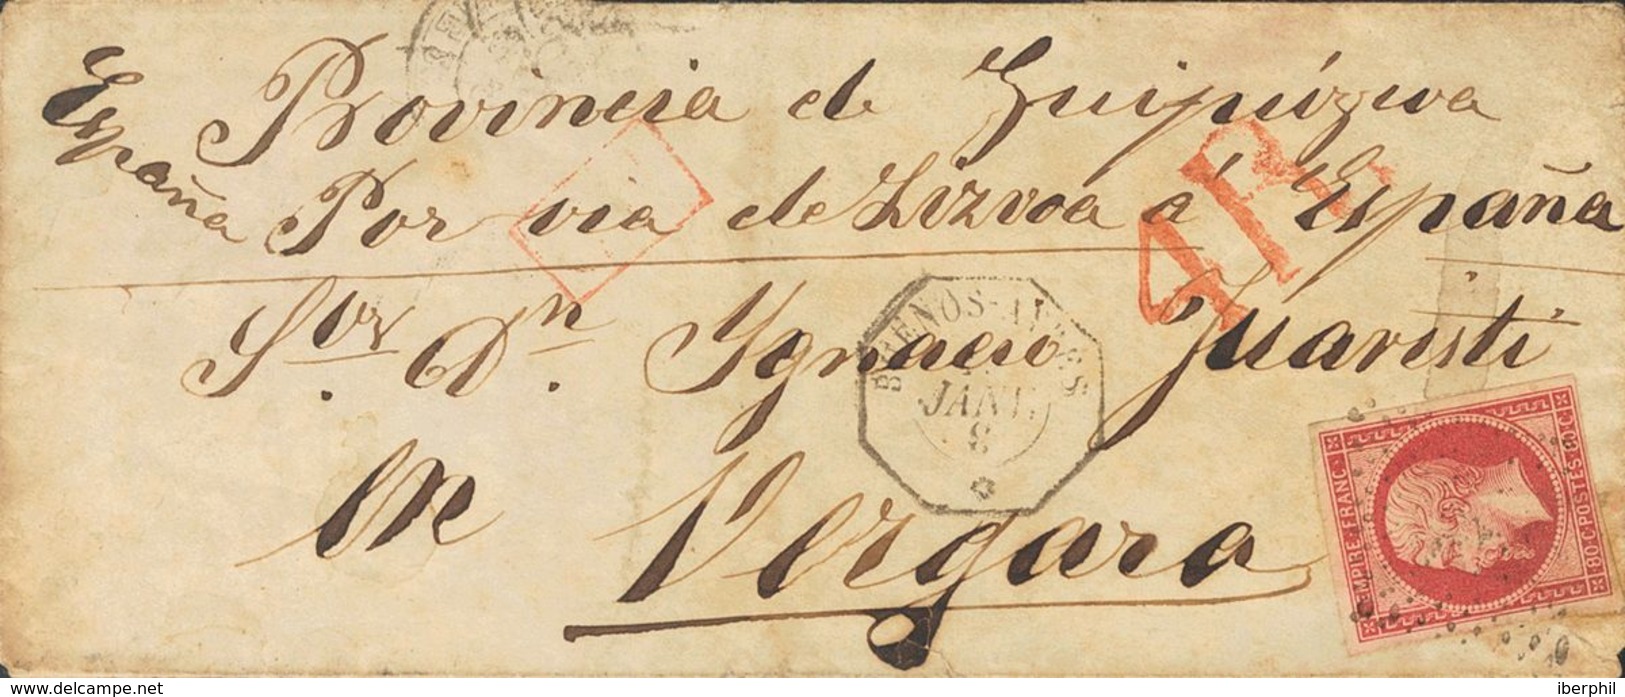 España
Provincia de Guipúzcoa
Por via de Lizvoa á España
4R.
S.or D.n Ygnacio Juaristi
en Vergara
BUENOS-AYRES
JANV.
8
EMPIRE FRANC.
80·C·POSTES·80·C·
iberphil